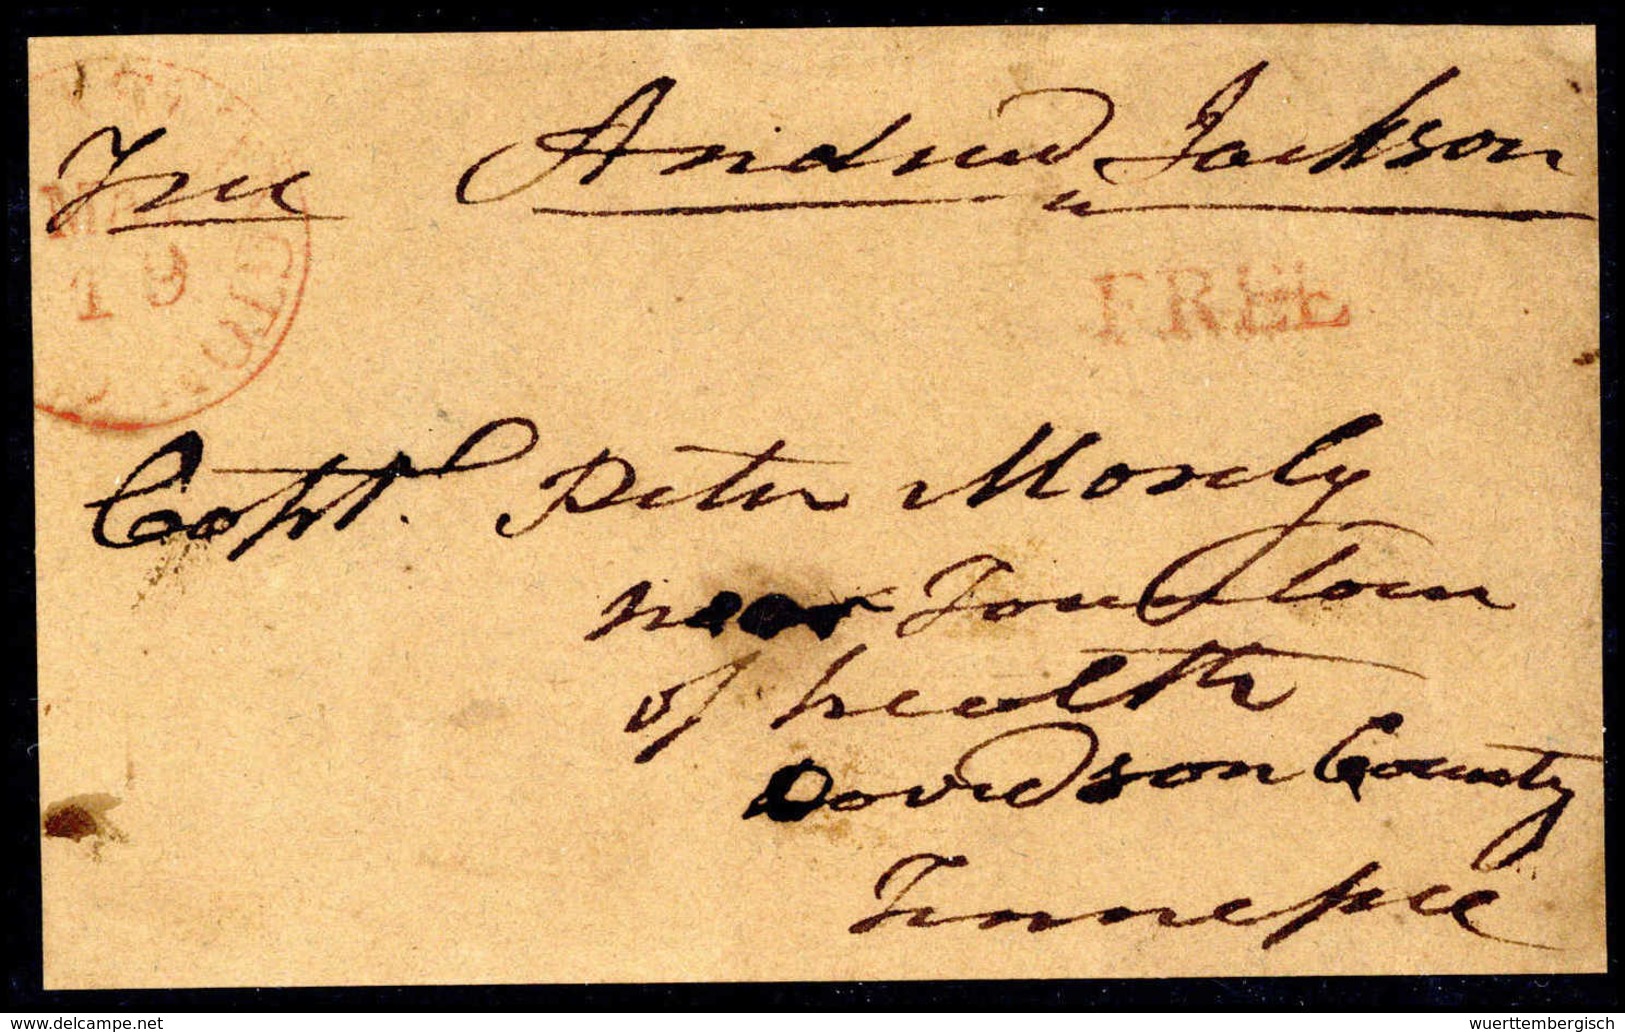 Free Andrew Jackson
19
FREE
Capt. Peter Mosely
near Fountain
of health
Davidson County
Tennessee
www.delcampe.net
wuerttembergisch